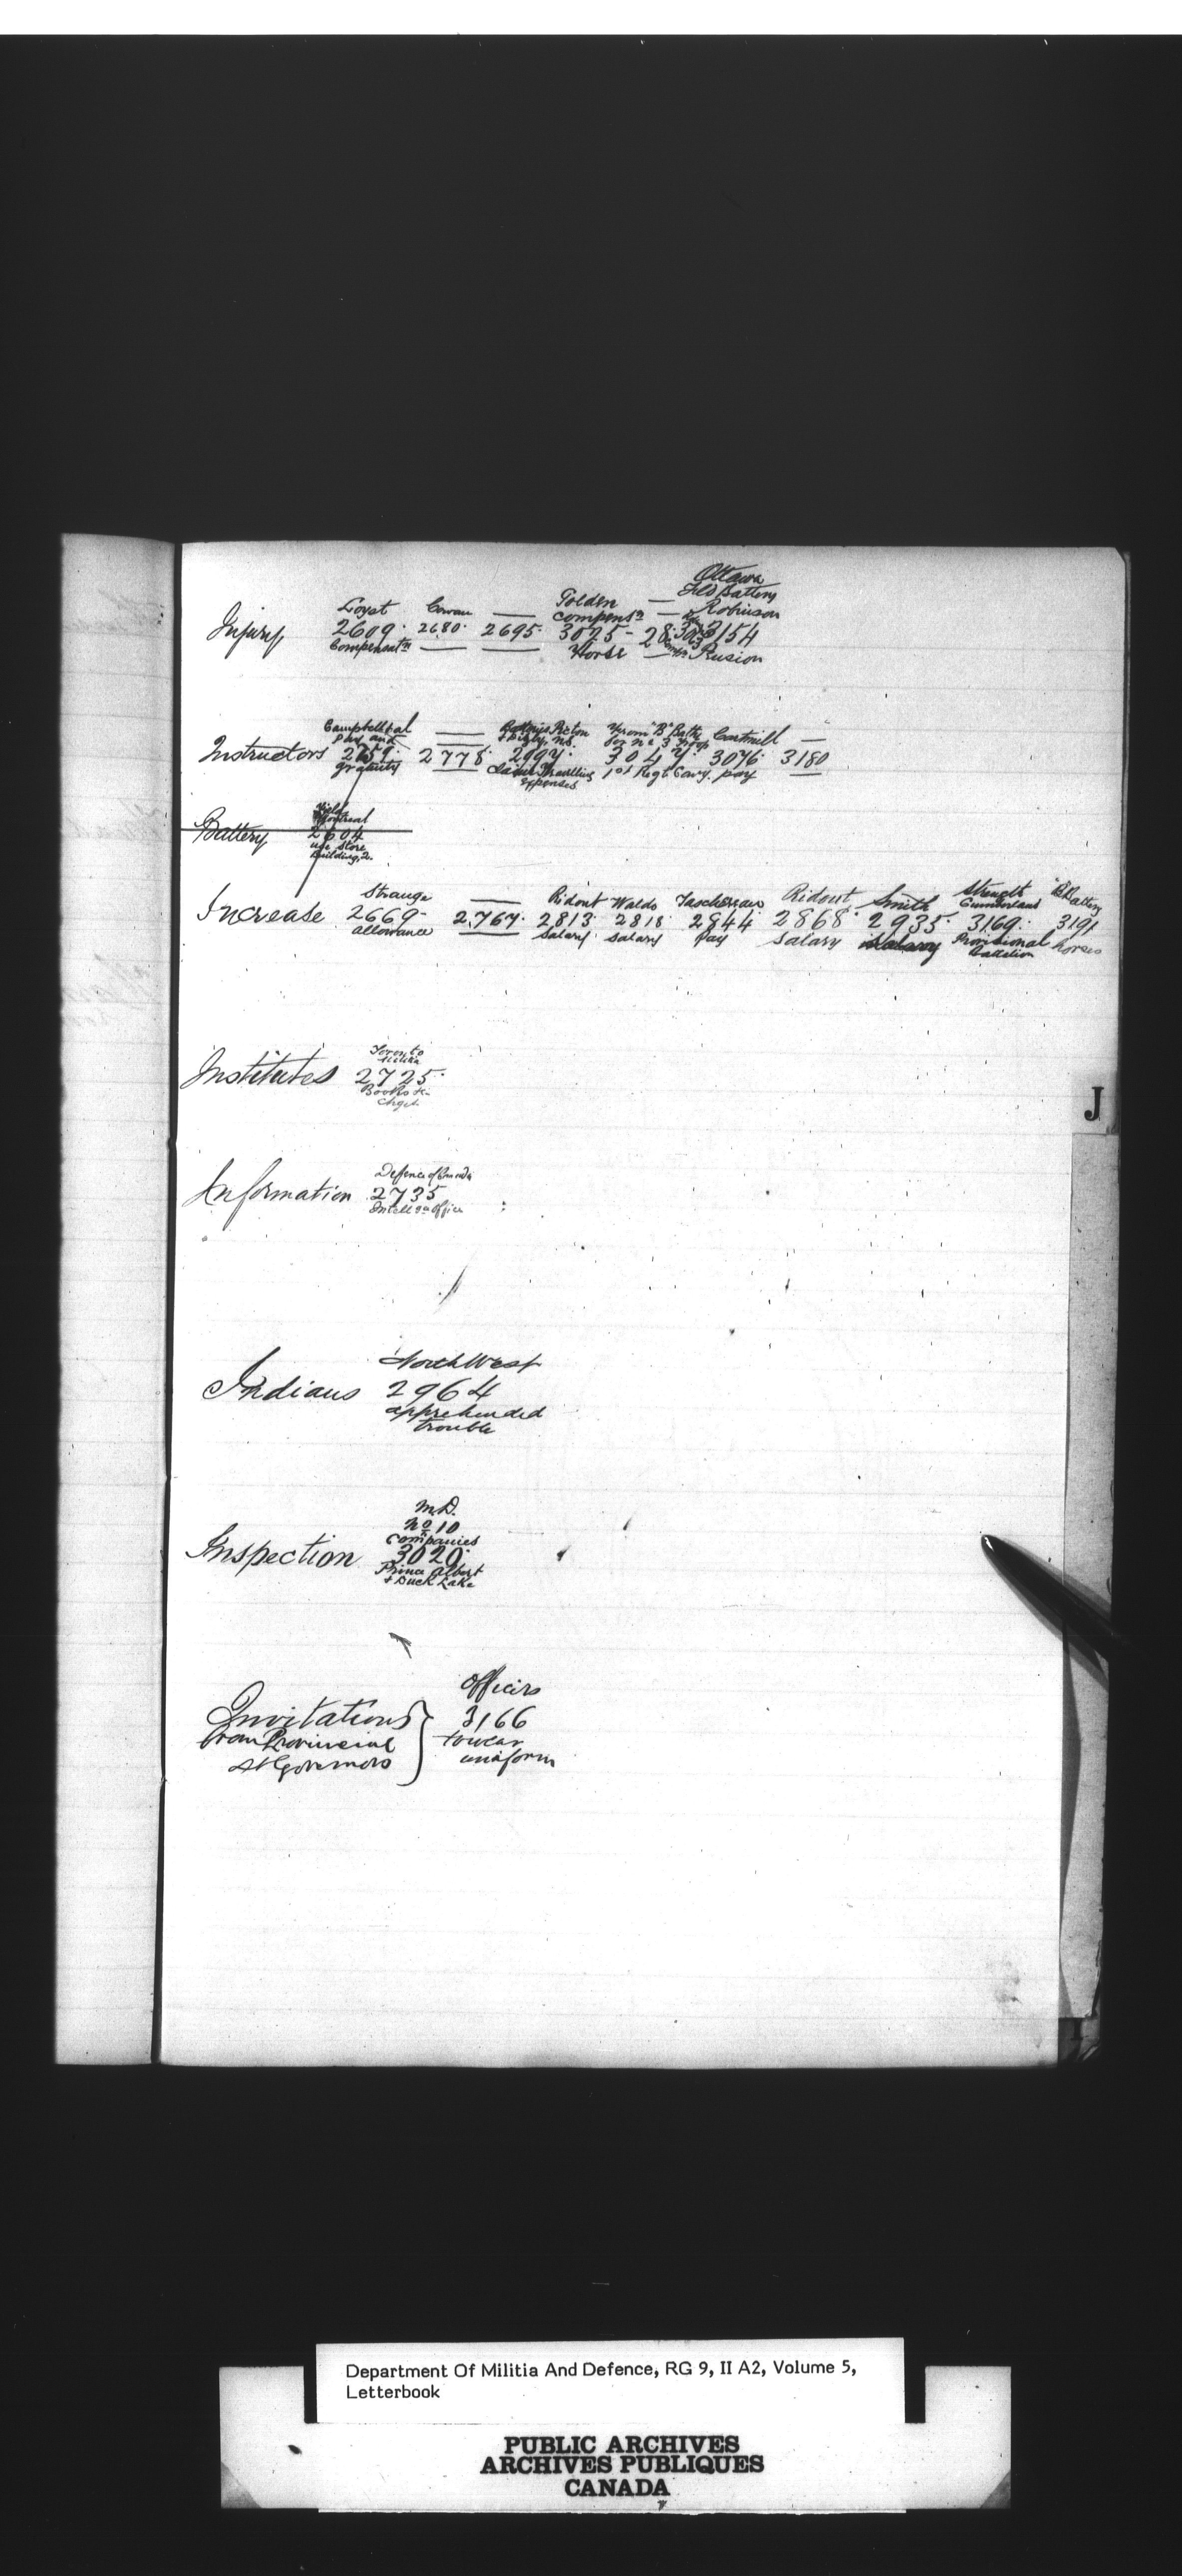 Ottawa
Loyst Cowan — Tolden — Fld Battery
compensn — Robinson
Injury 2609. 2680. 2695. 3025 - 28. 3063 3154
Compensatn Horse —
Campbell &al — Batteries Picton "B" Batty Cartmill —
pay and + Digby, N.S. for No 3 Troop
Instructors 2759. 2778. 2997. 3047. 3076 3180
gratuity Travelling 1st Regt Cavy. pay
expenses
Field
Montreal
Battery 2604
use store
building, 2.
Strange — Ridout Waldo Taschereau Ridout Smith Strength "B" Battery
Cumberland
Increase 2669- 2.767. 2813. 2818. 2844 2868. 2935. 3169. 3191
allowance salary. salary pay salary salary Provisional horses
Battalion
Toronto
Institutes 2725.
Books &c
Defence of Canada
Information 2735
Intellgn Office
North West
Indians 2964
apprehended
trouble
M.D.
No 10
Companies
Inspection 3020.
Prince Albert
+ Duck Lake
J
Officers
Invitations 3166
from Provincial to wear
Lt Governors uniform
Department Of Militia And Defence, RG 9, II A2, Volume 5,
Letterbook
PUBLIC ARCHIVES
ARCHIVES PUBLIQUES
CANADA